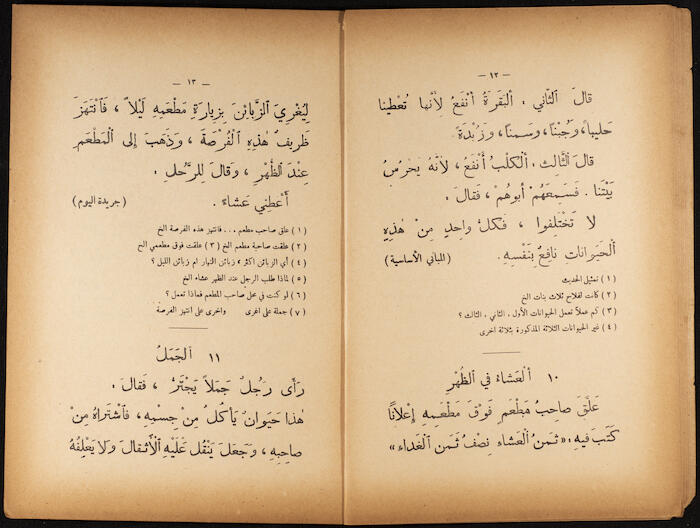 — ١٢ —
قالَ ٱلثّاني : ٱلبَقَرَةُ أَنْفَعُ لِأَنَّها تُعْطينا
حَليباً، وَجُبْناً، وَسَمناً، وَزُبْدَةً.
قالَ ٱلثّالِثُ : ٱلْكَلْبُ أَنْفَعُ، لِأَنَّهُ يَحْرُسُ
بَيْتَنا. فَسَمِعَهُمْ أَبوهُمْ، فَقالَ :
لا تَخْتَلِفوا، فَكُلُّ واحِدٍ مِنْ هٰذِهِ
ٱلْحَيَوانات نافِعٌ بِنَفْسِهِ. (المباني الأساسية)
(١) تمثيل الحديث
(٢) كانت لفلاح ثلاث بنات الخ
(٣) كم عملاً تعمل الحيوانات الأول، الثاني، الثالث ؟
(٤) غير الحيوانات الثلاثة المذكورة بثلاثة اخرى
١٠ ٱلْعَشاءُ في ٱلظُّهْرِ
عَلَّقَ صاحِبُ مَطْعَمٍ فَوْقَ مَطْعَمِهِ إِعْلاناً
كَتَبَ فيهِ : «ثَمَنُ ٱلْعَشاء نِصْفُ ثَمَن ٱلْغَداء»
— ١٣ —
لِيُغْرِيَ ٱلزَّبائِنَ بِزِيارَةِ مَطْعَمِهِ لَيْلاً، فَٱنْتَهَزَ
ظَريفٌ هٰذِهِ ٱلْفُرْصَةَ، وَذَهَبَ إِلى ٱلْمَطْعَمِ
عِنْدَ ٱلظُّهْرِ، وَقالَ لِلرَّجُلِ :
أَعْطِني عَشاءً. (جريدة اليوم)
(١) علق صاحب مطعم ... فانتهز هذه الفرصة الخ
(٢) علقت صاحبة مطعم الخ (٣) علقت فوق مطعمي الخ
(٤) أي الزبائن اكثر ؟ زبائن النهار ام زبائن الليل ؟
(٥) لماذا طلب الرجل عند الظهر عشاء الخ
(٦) لو كنت في محل صاحب المطعم فماذا تعمل ؟
(٧) جملة على اغرى واخرى على انتهز الفرصة
١١ ٱلجَمَلُ
رَأى رَجُلٌ جَمَلاً يَجْتَرُّ، فَقالَ :
هٰذا حَيَوانٌ يَأْكُلُ مِنْ جِسْمِهِ، فَٱشْتَراهُ مِنْ
صاحِبِهِ، وَجَعَلَ يَنْقُل عَلَيْهِ ٱلْأَثْقالَ وَلا يَعْلِفُهُ